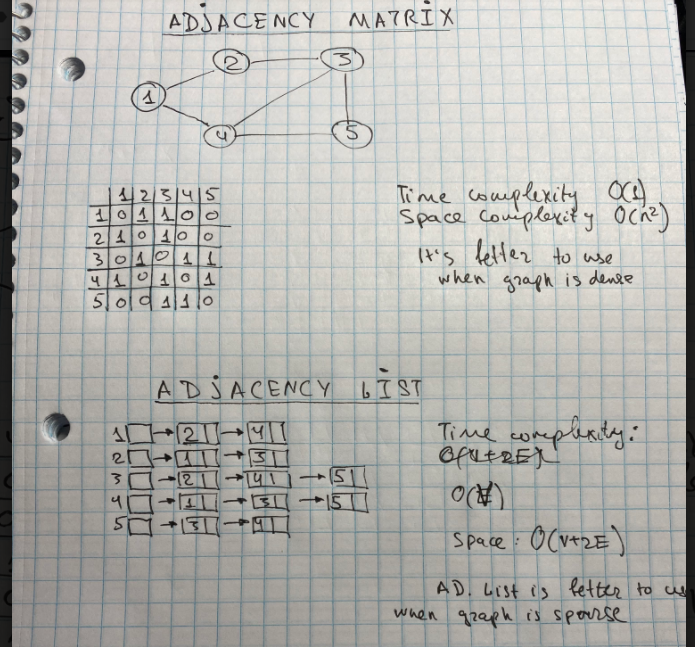 ADJACENCY MATRIX
2 3
1
4 5
1 2 3 4 5
1 0 1 1 0 0
2 1 0 1 0 0
3 0 1 0 1 1
4 1 0 1 0 1
5 0 0 1 1 0
Time complexity O(1)
Space complexity O(n²)
It's better to use
when graph is dense
ADJACENCY LIST
1 → 2 → 4
2 → 1 → 3
3 → 2 → 4 → 5
4 → 1 → 3 → 5
5 → 3 → 4
Time complexity:
O(V+2E)
O(V)
Space: O(V+2E)
AD. List is better to us
when graph is sparse